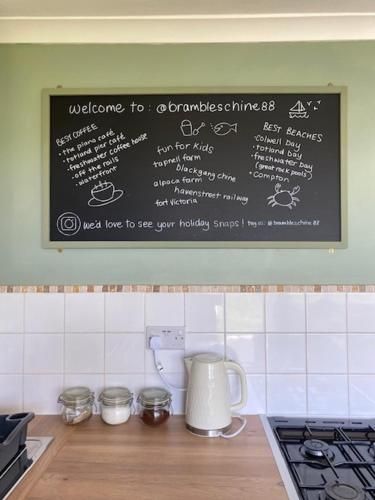 welcome to: @brambleschine88
BEST COFFEE
• the piano café
• totland pier café
• freshwater coffee house
• off the rails
• waterfront
fun for kids
tapnell farm
blackgang chine
alpaca farm
havenstreet railway
fort victoria
BEST BEACHES
• colwell bay
• totland bay
• freshwater bay
(great rock pools)
• compton
we'd love to see your holiday snaps! tag us: @brambleschine88